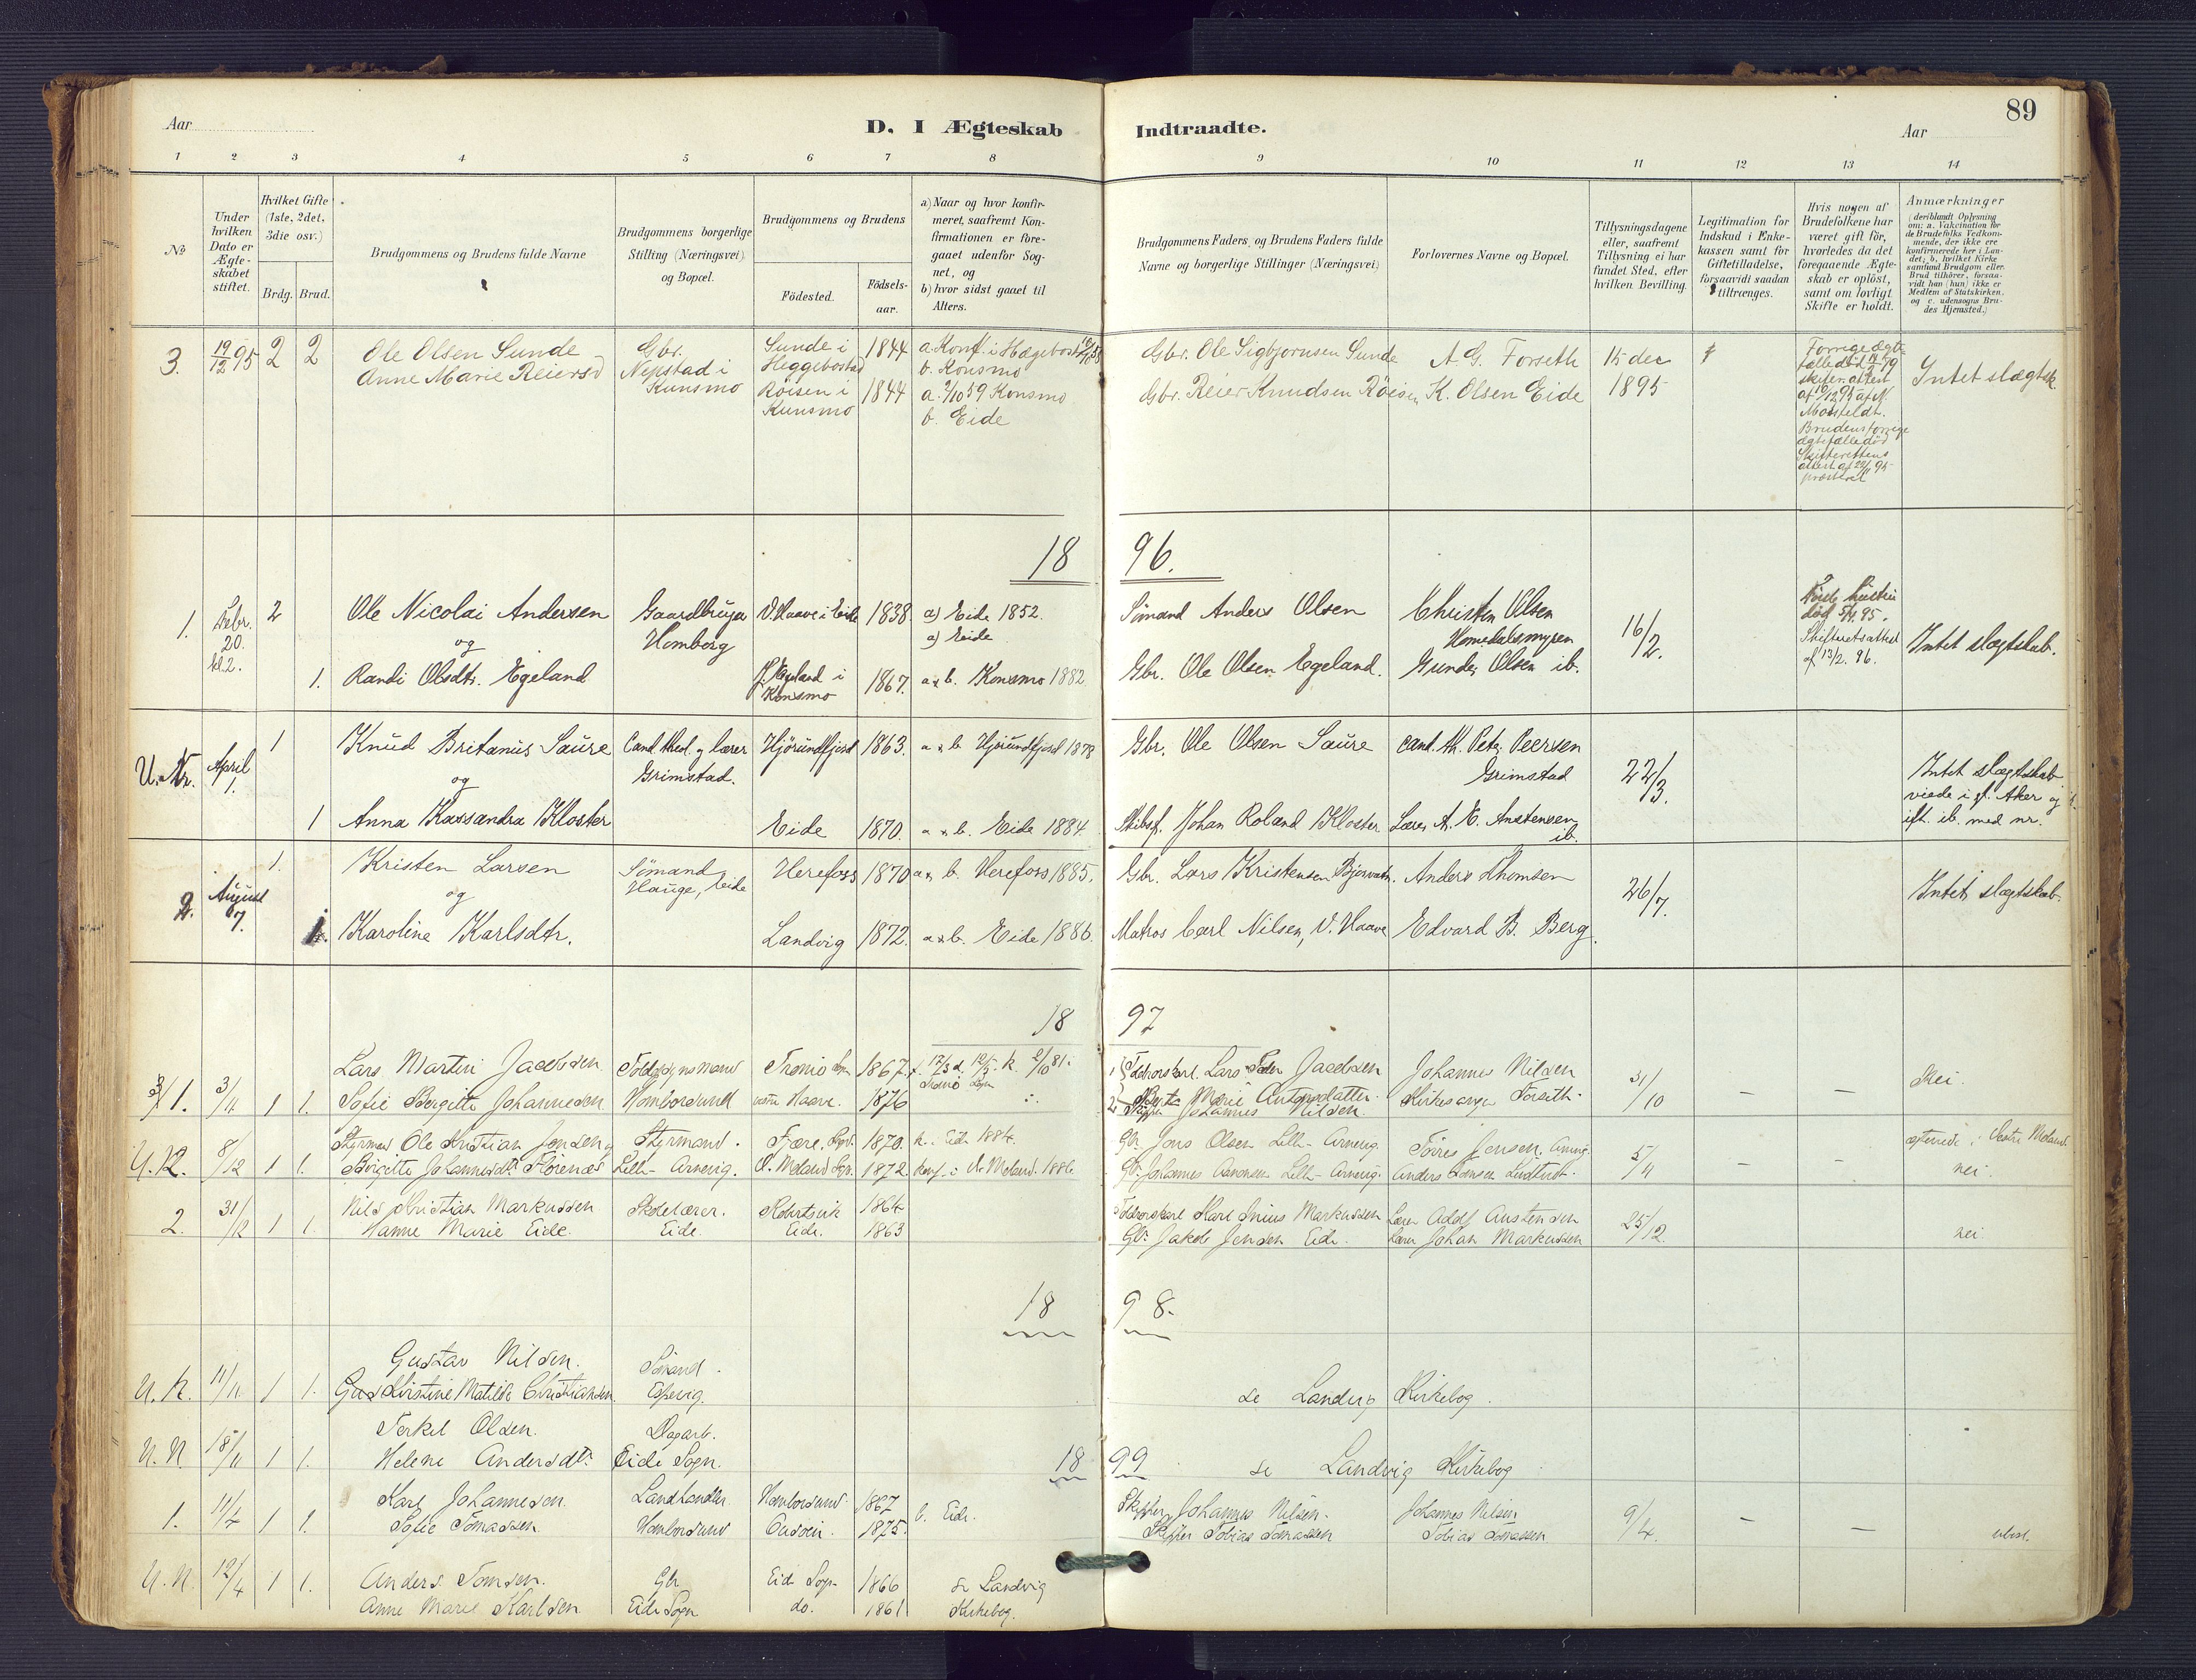 89
Aar
D. I Ægteskab
Indtraadte.
Aar
1 2 3 4 5 6 7 8 9 10 11 12 13 14
No
Under hvilken Dato er Ægteskabet stiftet.
Hvilket Gifte (1ste, 2det, 3die osv.)
Brdg. Brud.
Brudgommens og Brudens fulde Navne
Brudgommens borgerlige Stilling (Næringsvei) og Bopæl.
Brudgommens og Brudens
Födested.
Födsels-aar.
a) Naar og hvor konfir-
meret, saafremt Kon-
firmationen er fore-
gaaet udenfor Sog-
net, og
b) hvor sidst gaaet til
Alters.
Brudgommens Faders og Brudens Faders fulde
Navne og borgerlige Stillinger (Næringsvei)
Forlovernes Navne og Bopæl.
Tillysningsdagene
eller, saafremt
Tillysning ei har
fundet Sted, efter
hvilken Bevilling.
Legitimation for
Indskud i Enke-
kassen samt for
Giftetilladelse,
forsaavidt saadan
tiltrænges.
Hvis nogen af
Brudefolkene har
været gift för,
hvorledes da det
foregaaende Ægte-
skab er oplöst,
samt om lovligt
Skifte er holdt.
Anmærkninger
(deriblandt Oplysning
om: a. Vakcination for
de Brudefolks Vedkom-
mende, der ikke ere
konfirmerede her i Lan-
det; b. hvilket Kirke-
samfund Brudgom eller
Brud tilhörer, forsaa-
vidt han (hun) ikke er
Medlem af Statskirken,
og c. udensogns Bru-
des Hjemsted.)
3. 19/12 95 2 2 Ole Olsen Sunde Gbr. Sunde i 1844 a. Konf. i Hægebostad Gbr. Ole Sigbjørnsen Sunde A. G. Forseth 15 dec
Anne Marie Reiersd Nepstad i Heggebostad b. Konsmo
Kunsmo Röisen i 1844 a. 2/10 59 Konsmo Gbr. Reier Knudsen Röisen K. Olsen Eide 1895 Intet slægtsk.
Kunsmo b. Eide
Forrige ægte-
fælle död
skifter. attest
Brudens forrige
ægtefælle död
Skifterettens
attest af
1896.
1. Febr. 20. kl. 2. 2 Ole Nicolai Andersen Gaardbruger V. Haave i Eide 1838. a) Eide 1852. Sömand Anders Olsen Christen Olsen 16/2.
og Homborg a) Eide Homedalsmyren
1. Randi Olsdtr. Egeland Egeland i Konsmo 1867. a & b. Konsmo 1882 Gbr. Ole Olsen Egeland. Gunder Olsen ib. Intet slægtskab.
död 5/4 95.
Skifteretsattest
af 13/2. 96.
U. Nr. April 1. 1 Knud Britanus Saure Cand. theol. og lærer Hjörundfjord 1863. a & b. Hjörundfjord 1878 Gbr. Ole Olsen Saure Cand. th. Peter Peersen
og Grimstad. Grimstad 22/3. Intet slægtskab
viede i
ib. med nr.
1 Anna Kassandra Kloster Eide 1870. a & b. Eide 1884. Skibsf. Johan Roland Kloster Lærer A. E. Anstensen ib.
2. August 7. 1. Kristen Larsen Sömand Herefoss 1870 a & b. Herefoss 1885. Gbr. Lars Kristensen Bjorvatn. Anders Thomsen 26/7. Intet slægtskab.
og Hauge, Eide
1. Karoline Karlsdtr. Landvig 1872. a & b. Eide 1886. Matros Carl Nilsen, V. Haave Edvard B. Berg.
1897
1. 3/11 1 1. Lars Martin Jacobsen Toldopsynsmand Tromö Sogn 1867. Lars Jacobsen Johannes Nilsen 31/10 – – Nei.
Sofie Bergitte Johannesen Hombersund vestre Haave. 1876 Skipper Johannes Nilsen. Kirkesanger Forseth.
U. N. 8/12 1 1. Styrmand Ole Kristian Jensen og Styrmand. Fjære Sogn. 1870. k. Eide 1884. Gbr. Jens Olsen Lille-Arnevig. Törres Jensen, 5/11 – – Vestre Moland
Birgitte Johannesdtr. Lille-Arnevig. V. Moland Sogn. 1872. konf. i V. Moland. 1886. Gbr. Johannes Lille-Arnevig. Anders nei.
2. 31/12 1 1. Nils Kristian Markussen Skolelærer. 1864 Karl Markussen Lærer Adolf Austensen 25/12. nei.
Hanne Marie Eide. Eide. Eide. 1863 Gbr. Jakob Jensen Eide. Lærer Johan Markussen
1898.
U. N. 11/11 1 1. Gustav Nilsen. Sömand.
Kirstine Matilde Christiansen Espevig. se Landvig Kirkebog.
U. N. 18/11 1 1. Terkel Olsen. Dagarb.
Helene Andersdtr. Eide Sogn. se Landvig Kirkebog
1899
1. 11/4 1 1. Karl Johannesen. Landhandler Hombersund. 1867 b. Eide. Skipper Johannes Nilsen. Johannes Nilsen 9/4. – –
Sofie Tomassen. Hombersund 1875. Skipper Tobias Tomassen Tobias Tomassen
U. N. 12/4 1 1. Anders Tomsen. Gbr Eide Sogn 1866 se Landvig
Anne Marie Karlsen Eide Sogn do. 1861 Kirkebog.